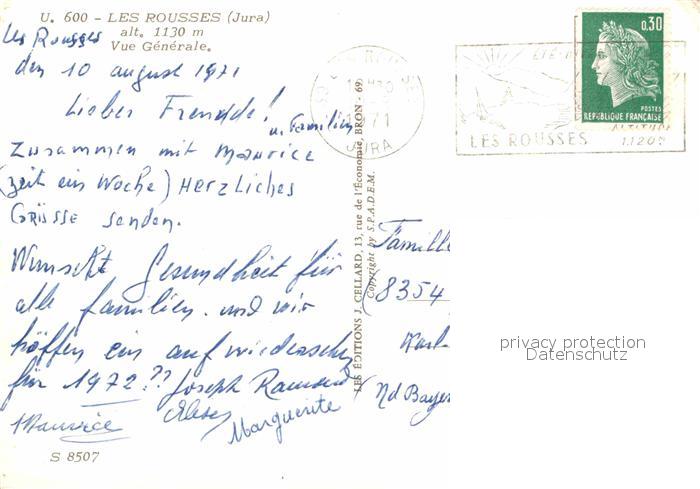 U. 600 - LES ROUSSES (Jura)
alt. 1130 m
Vue Générale.
Les Rousses
den 10 august 1971
Lieber Freudde!
u. Familien
Zusammen mit Maurice
(zeit ein Woche) Herzliches
Grüsse senden.
Wunscht Gesundheit für
alle familien. und wir
hoffen ein aufwiedersehn
für 1972?? Joseph Ramond
Maurice
Marguerite
S 8507
LES ÉDITIONS J. CELLARD, 13, rue de l'Économie, BRON - 69
Copyright by S.P.A.D.E.M.
JURA
LES ROUSSES
ALTITUDE
1120m
0,30
POSTES
RÉPUBLIQUE FRANÇAISE
Famille
(8354
Karl-
Nd Baye
privacy protection
Datenschutz